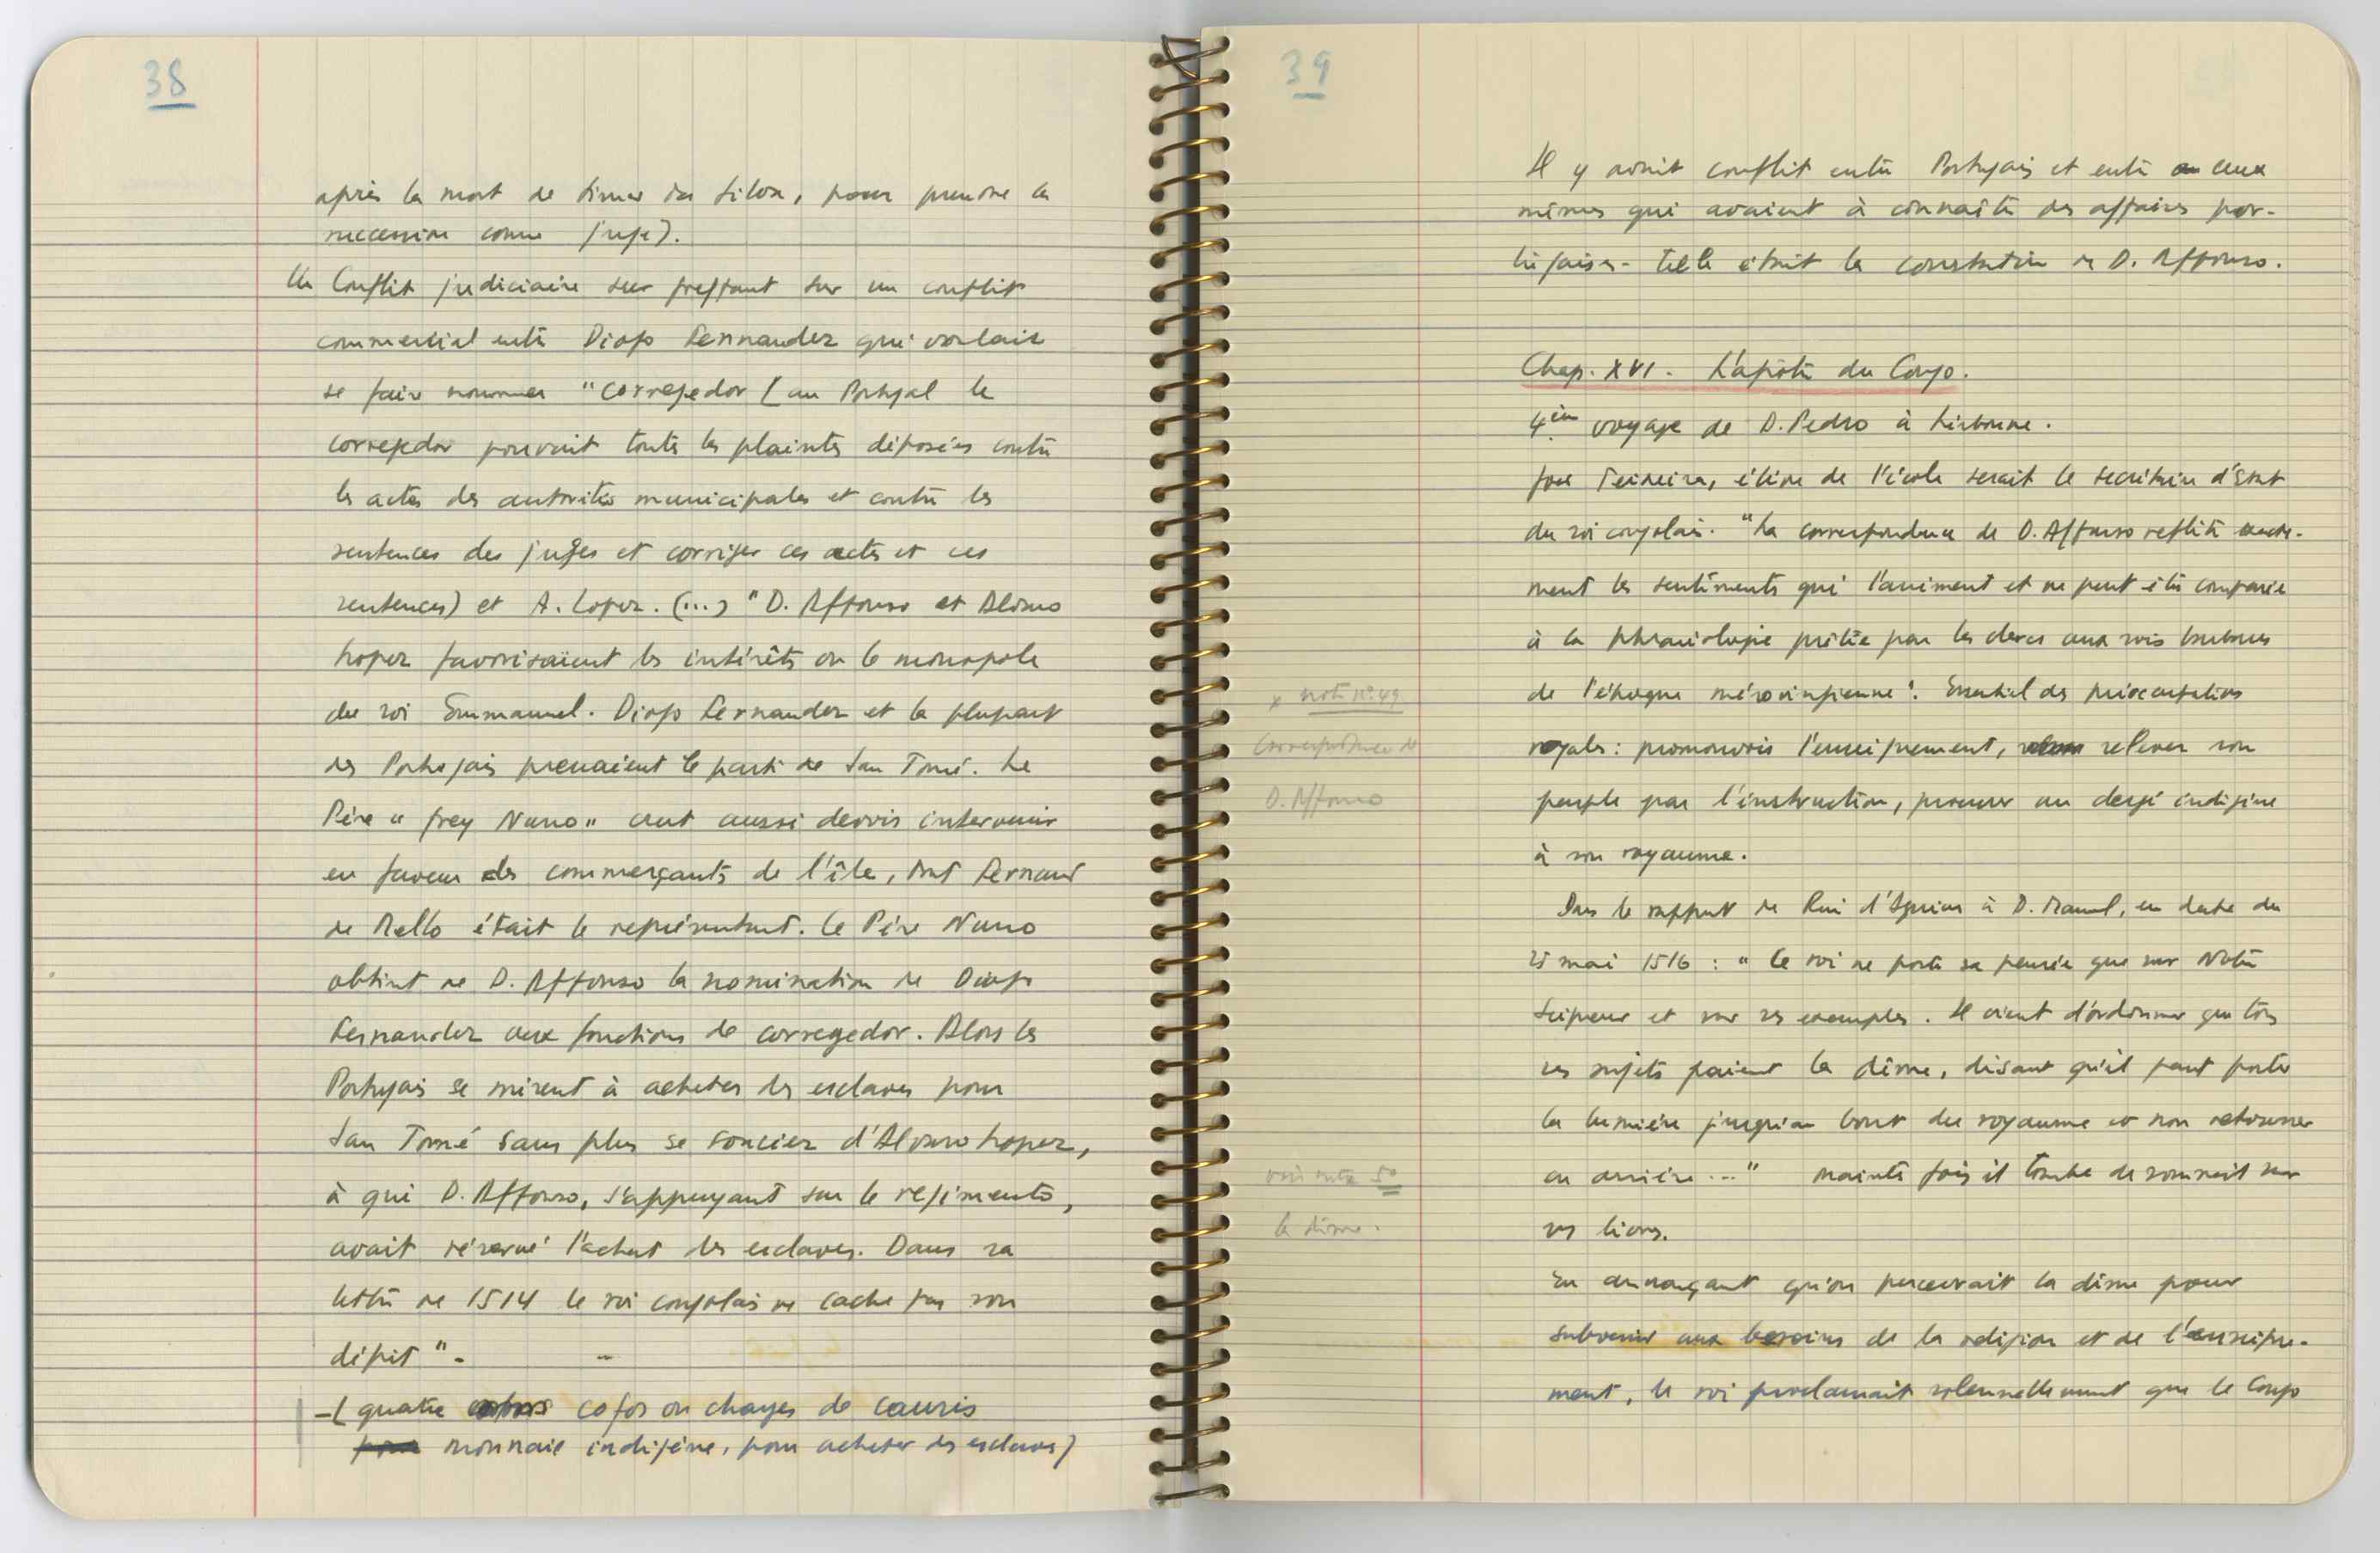 38
après la mort de Simao da Silva, pour prendre la
succession comme juge).
Un Conflit judiciaire se greffant sur un conflit
commercial entre Diogo Fernandez qui voulait
se faire nommer "corregedor (au Portugal le
corregedor pouvait toutes les plaintes déposées contre
les actes des autorités municipales et contre les
sentences des juges et corriger ces actes et ces
sentences) et A. Lopez. (...) "D. Affonso et Alvaro
Lopez favorisaient les intérêts ou le monopole
du roi Emmanuel. Diogo Fernandez et la plupart
des Portugais prenaient le parti de San Tomé. Le
Père "frey Nuno" crut aussi devoir intervenir
en faveur des commerçants de l'île, dont Fernand
de Mello était le représentant. Le Père Nuno
obtint de D. Affonso la nomination de Diogo
Fernandez aux fonctions de corregedor. Alors les
Portugais se mirent à acheter des esclaves pour
San Tomé sans plus se soucier d'Alvaro Lopez,
à qui D. Affonso, s'appuyant sur le regimento,
avait réservé l'achat des esclaves. Dans sa
lettre de 1514 le roi congolais ne cache pas son
dépit" - -
-( quatre cofos ou charges de cauris
monnaie indigène, pour acheter des esclaves)
39
Il y avait conflit entre Portugais et entre ceux
mêmes qui avaient à connaître des affaires por-
tugaises - telle était la constatation de D. Affonso.
Chap. XVI. L'apôtre du Congo.
4ème voyage de D. Pedro à Lisbonne.
Joao Teixeira, élève de l'école serait le secrétaire d'Etat
du roi congolais. "La correspondance de D. Affonso reflète
ment les sentiments qui l'animent et ne peut être comparée
à la phraséologie prêtée par les clercs aux rois barbares
de l'époque mérovingienne". Essentiel des préoccupations
royales : promouvoir l'enseignement, relever son
peuple par l'instruction, procurer un clergé indigène
à son royaume.
x note n° 49
Correspondance de
D. Affonso
Dans le rapport de Rui d'Aguiar à D. Manuel, en date du
25 mai 1516 : "Le roi ne porte sa pensée que sur Notre
Seigneur et sur ses exemples. Il vient d'ordonner que tous
ses sujets paient la dîme, disant qu'il faut porter
la lumière jusqu'au bout du royaume et non retourner
en arrière ..." Mainte fois il tombe de sommeil sur
ses livres.
voir note 50
la dîme.
En annonçant qu'on percevrait la dîme pour
subvenir aux besoins de la religion et de l'enseigne-
ment, le roi proclamait solennellement que le Congo